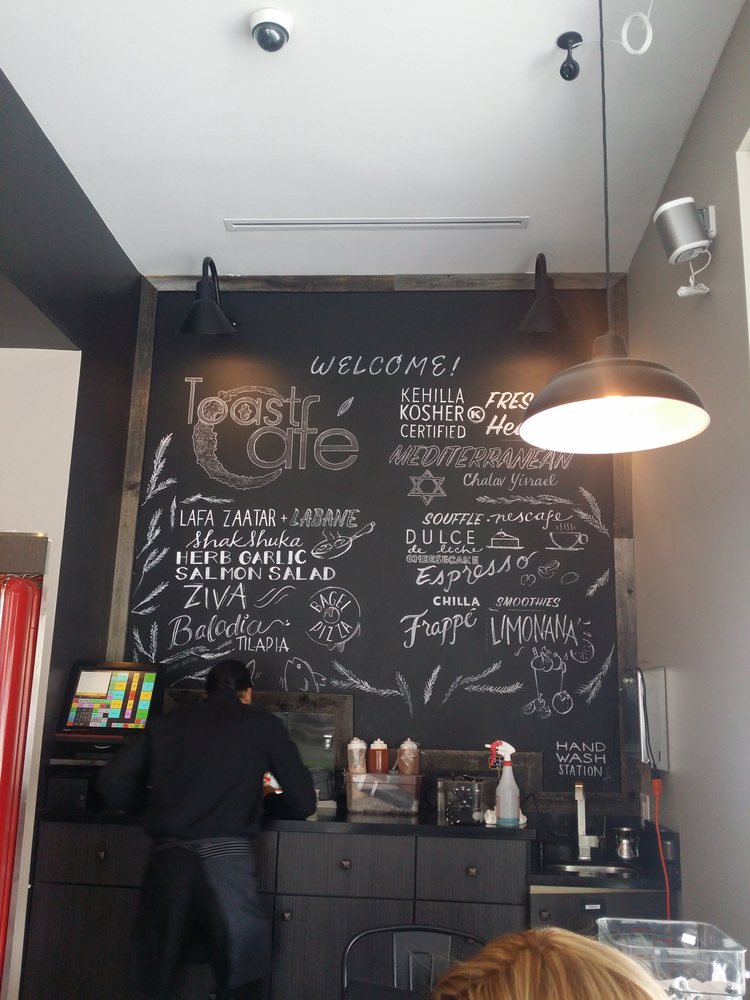 WELCOME!
Toastr
Café
KEHILLA
KOSHER K
CERTIFIED
MEDITERRANEAN
Chalav Yisrael
LAFA ZAATAR + LABANE
Shakshuka
HERB GARLIC
SALMON SALAD
ZIVA
BAGEL
PIZZA
Baladia
TILAPIA
SOUFFLE · nescafe
DULCE
de leche
CHEESECAKE
Espresso
CHILLA SMOOTHIES
Frappé LIMONANA
HAND
WASH
STATION